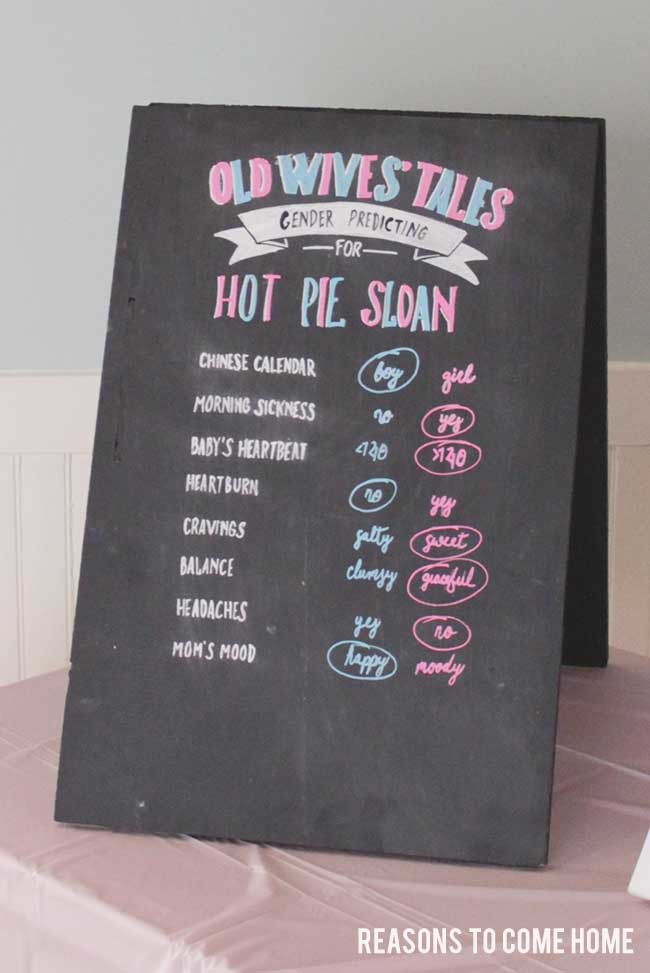 OLD WIVES' TALES
GENDER PREDICTING
FOR
HOT PIE SLOAN
CHINESE CALENDAR boy girl
MORNING SICKNESS no yes
BABY'S HEARTBEAT <140 >140
HEARTBURN no yes
CRAVINGS salty sweet
BALANCE clumsy graceful
HEADACHES yes no
MOM'S MOOD happy moody
REASONS TO COME HOME